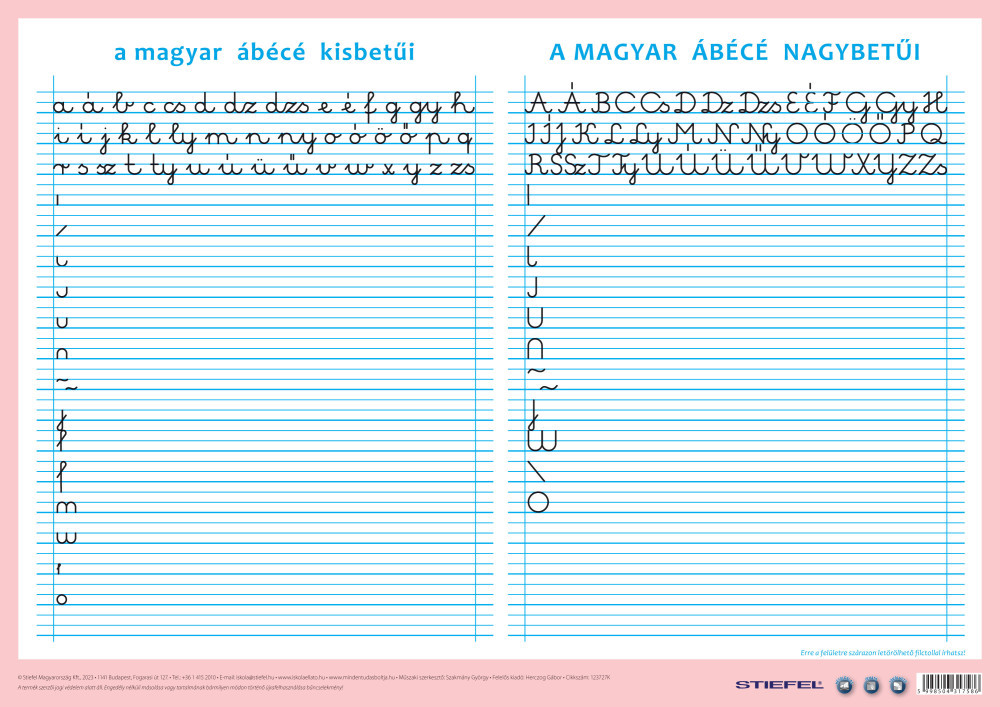 a magyar ábécé kisbetűi
a á b c cs d dz dzs e é f g gy h
i í j k l ly m n ny o ó ö ő p q
r s sz t ty u ú ü ű v w x y z zs
A MAGYAR ÁBÉCÉ NAGYBETŰI
A Á B C Cs D Dz Dzs E É F G Gy H
I Í J K L Ly M N Ny O Ó Ö Ő P Q
R S Sz T Ty U Ú Ü Ű V W X Y Z Zs
Erre a felületre szárazon letörölhető filctollal írhatsz!
© Stiefel Magyarország Kft., 2023 • 1141 Budapest, Fogarasi út 127. • Tel.: +36 1 415 2010 • E-mail: iskola@stiefel.hu • www.iskolaellato.hu • www.mindentudasboltja.hu • Műszaki szerkesztő: Szakmány György • Felelős kiadó: Herczog Gábor • Cikkszám: 123727K
A termék szerzői jogi védelem alatt áll. Engedély nélküli másolása vagy tartalmának bármilyen módon történő újrafelhasználása bűncselekmény!
STIEFEL
5 998504 317586